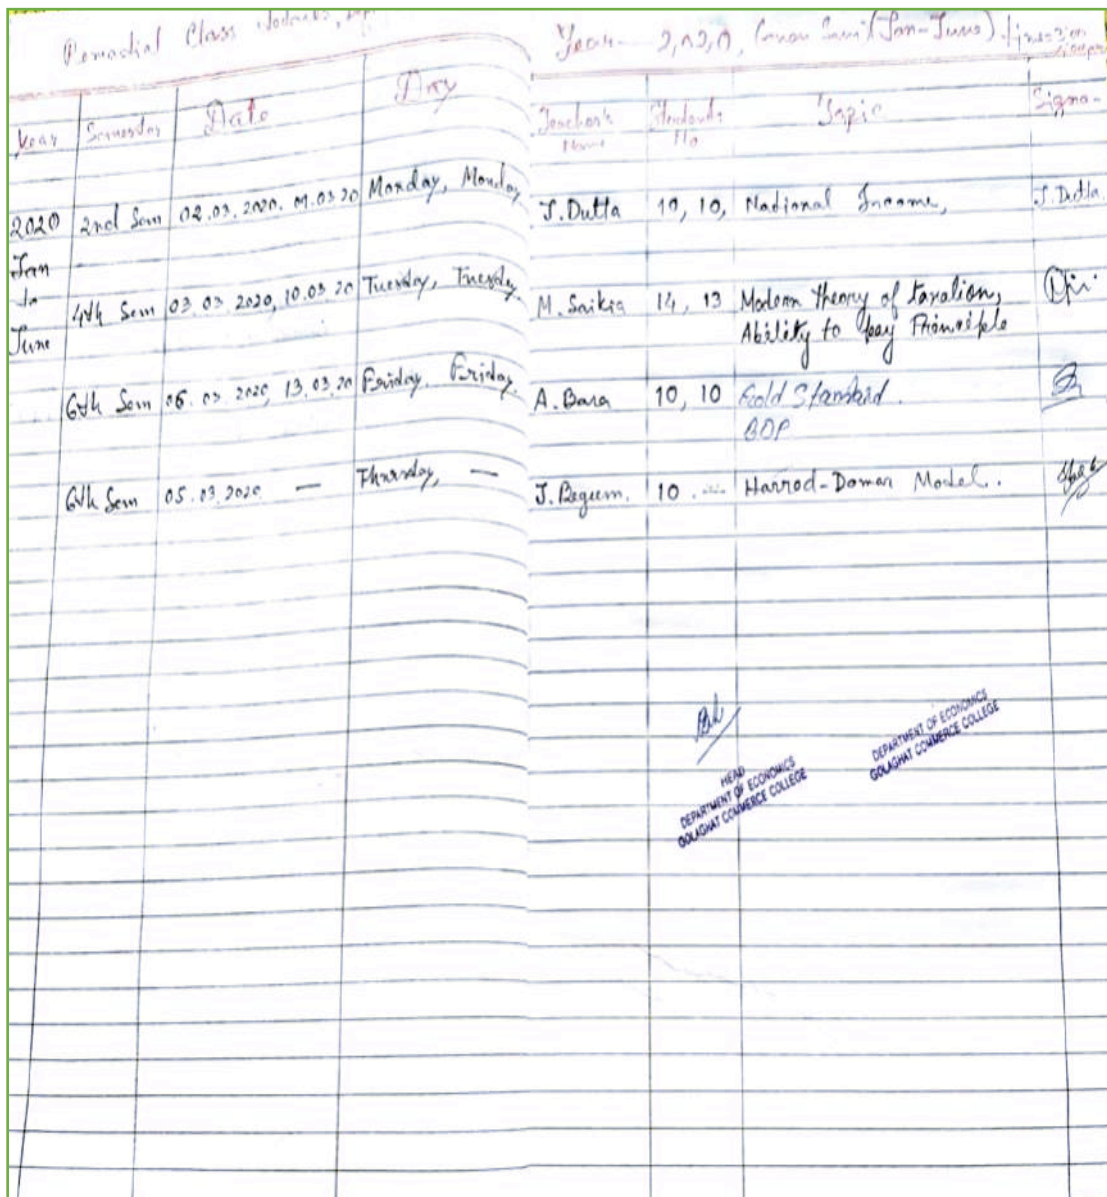 Remedial Class
Year- 2020, (Even Sem) (Jan-June)
Year Semester Date Day Teacher's Name Students No Topic Signa-
2020 2nd Sem 02.03.2020. 09.03.20 Monday, Monday, J. Dutta 10, 10, National Income, J. Dutta.
Jan
to
June
4th Sem 03.03.2020, 10.03.20 Tuesday, Tuesday. M. Saikia 14, 13 Modern theory of taxation,
Ability to pay Principle
6th Sem 06.03.2020, 13.03.20 Friday. Friday. A. Bara 10, 10 Gold Standard.
BOP
6th Sem 05.03.2020. — Thursday, — J. Begum. 10. — Harrod-Domar Model.
HEAD
DEPARTMENT OF ECONOMICS
GOLAGHAT COMMERCE COLLEGE
DEPARTMENT OF ECONOMICS
GOLAGHAT COMMERCE COLLEGE